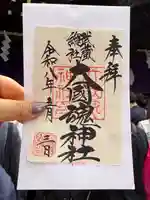 奉拝
武蔵
総社
大國魂神社
令和八年一月三日